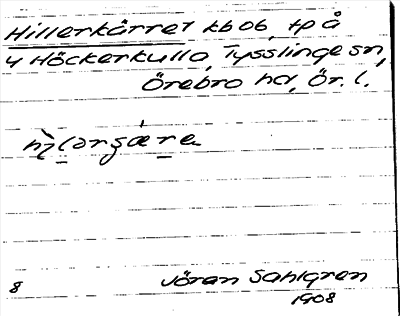 Hillerkärret kb ob, tp å
4 Höckerkulla, Tysslinge sn,
Örebro hd, Ör. l.
Jöran Sahlgren
8
1908